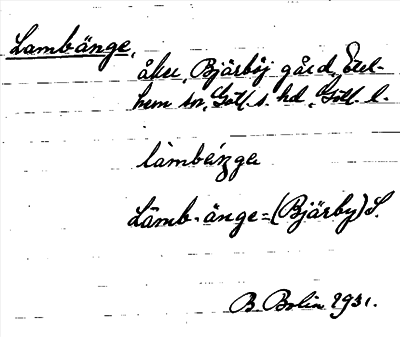 Lambänge,
åker, Bjärböj gård, Etel-
hem sn, Gotl. s. hd, Gotl. l.
làmbéŋga
Lāmb-änge=(Bjärby)S.
B. Bolin 1931.